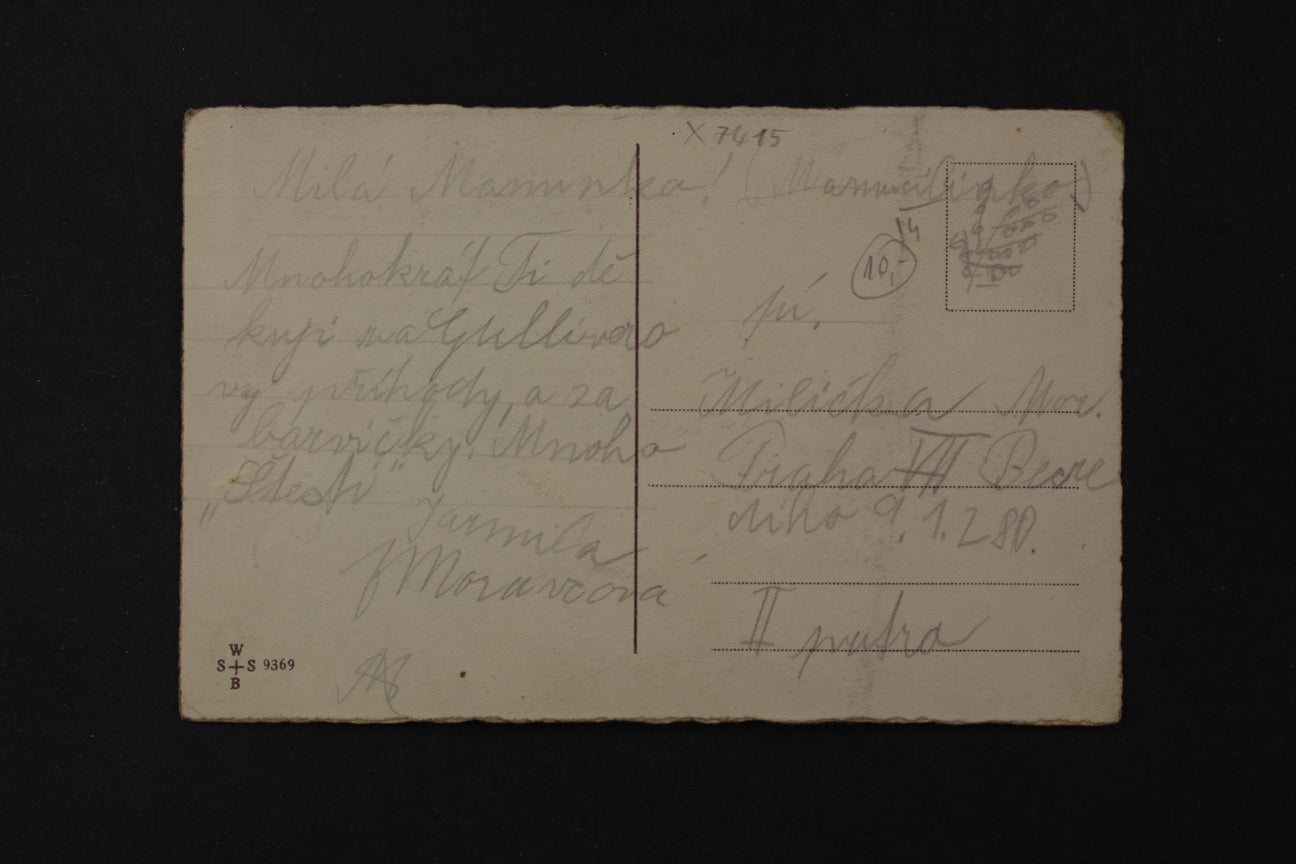 X 7415
Milá Maminka! (Mamicilinko)
14
10,-
Mnohokrát Ti dě
kuji za Gullivero
vy příhody, a za
barvičky. Mnoho
„Štestí"
Jarmila
Moravcová
W
S+S 9369
B
Milička Mor.
Praha VII
dího 9. 1.280.
II patra